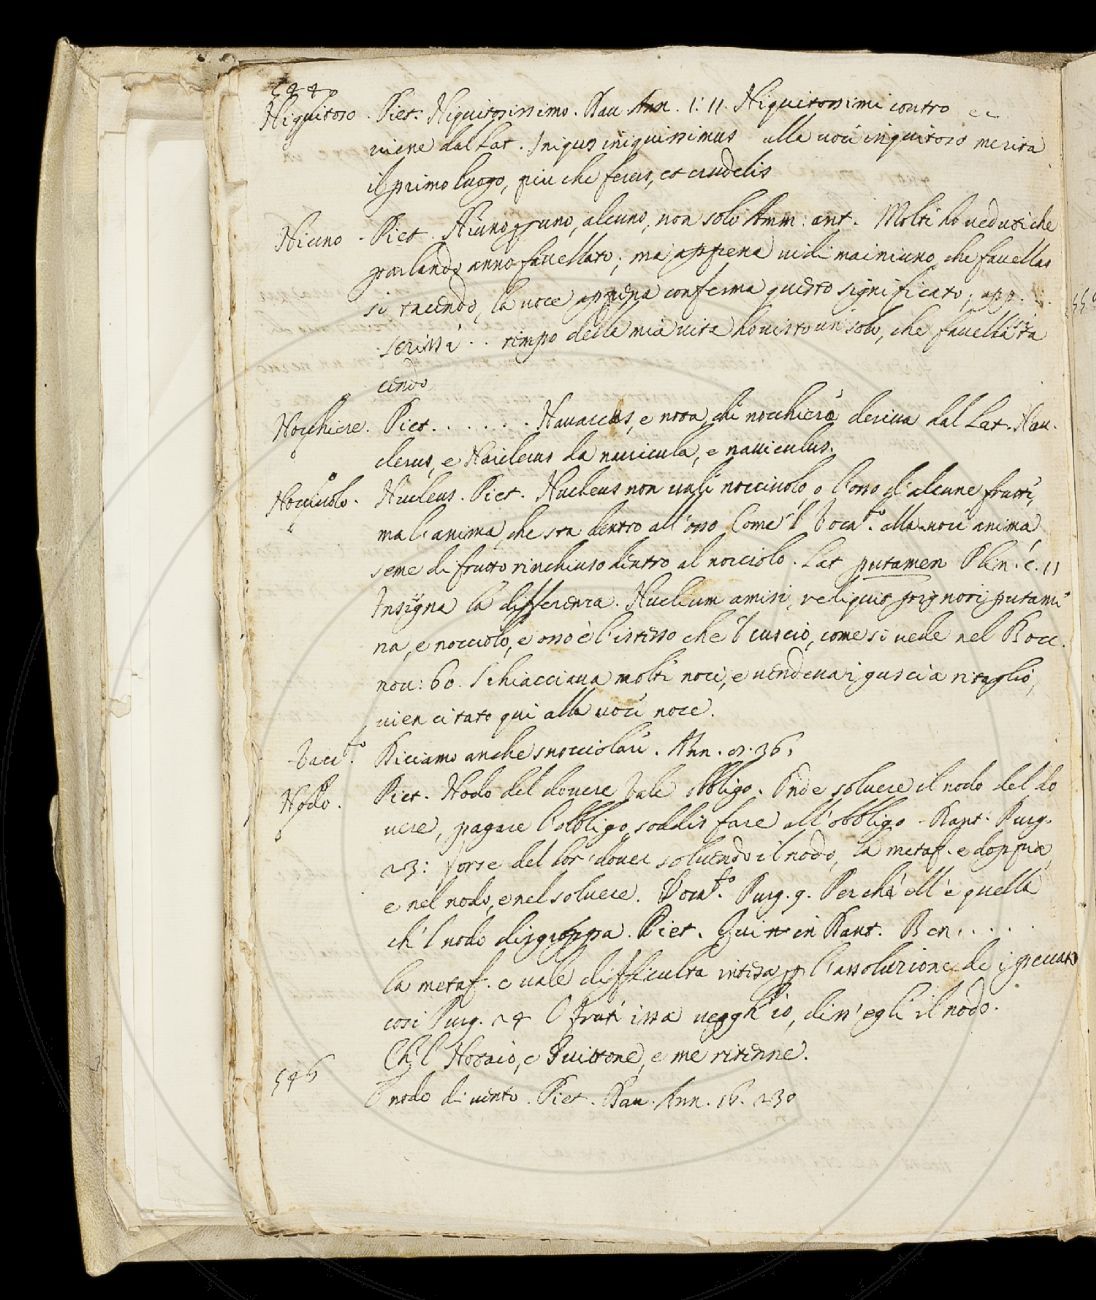 5440
Niquitoso. Piet. Niquitosissimo. Dau. Ann. 1. 11. Niquitosissimi contro ec
viene dal Lat. Iniquus iniquissimus alla voce iniquitoso merita
il primo luogo, piu che ferus, et crudelis
Niuno - Piet. Niuno p uno, alcuno, non solo Amm: ant. Molti ho veduti che
parlando anno favellato; ma appena vidi mai niuno che favellas
si tacendo, la voce appena conferma questo significato; app.
tempo della mia vita ho visto un solo, che favellasse ta
cendo
Nocchiere. Piet. . . . . . . e nota che nocchiero deriva dal Lat. Nau-
clerus, e Nauclerus da navicula, e naviculus.
Nocciuolo. Nucleus. Piet. Nucleus non vale nocciuolo o l'osso d'alcune frutti,
ma l'anima, che sta dentro all'osso. Come 'l Voca.ro alla voce anima
seme di frutto rinchiuso dentro al nocciolo. Lat putamen Plin. 11
Insegna la differenza. Nucleum amisi, reliquit pignori putami
na, e nocciolo, e osso è l'istesso che 'l guscio, come si vede nel Bocc.
nov: 60. Schiacciava molti noci, e vendeva i gusci a ritaglio,
vien citato qui alla voce noce.
Diciamo anche snocciolare. Ann. 36.
Nodo. Piet. Nodo del dovere vale obbligo. Onde solvere il nodo del do
vere, pagare l'obbligo, soddisfare all'obbligo - Dant. Purg.
23: forse del lor dover solvendo il nodo, la metaf. e doppia,
e nel nodo, e nel solvere. Voca.ro Purg. 9. Perch' ell' è quella
ch' l nodo disgroppa. Piet. Qui in Dant. Ben . . . . .
la metaf. e vale difficulta intesa p l'assoluzione de i peccati
cosi Purg. 24 O frate issa vegg'h'io, diss'egli il nodo.
Ch'l Notaio, e Guittone, e me ritenne.
546
nodo di vento. Piet. Dau. Ann. 16. 230